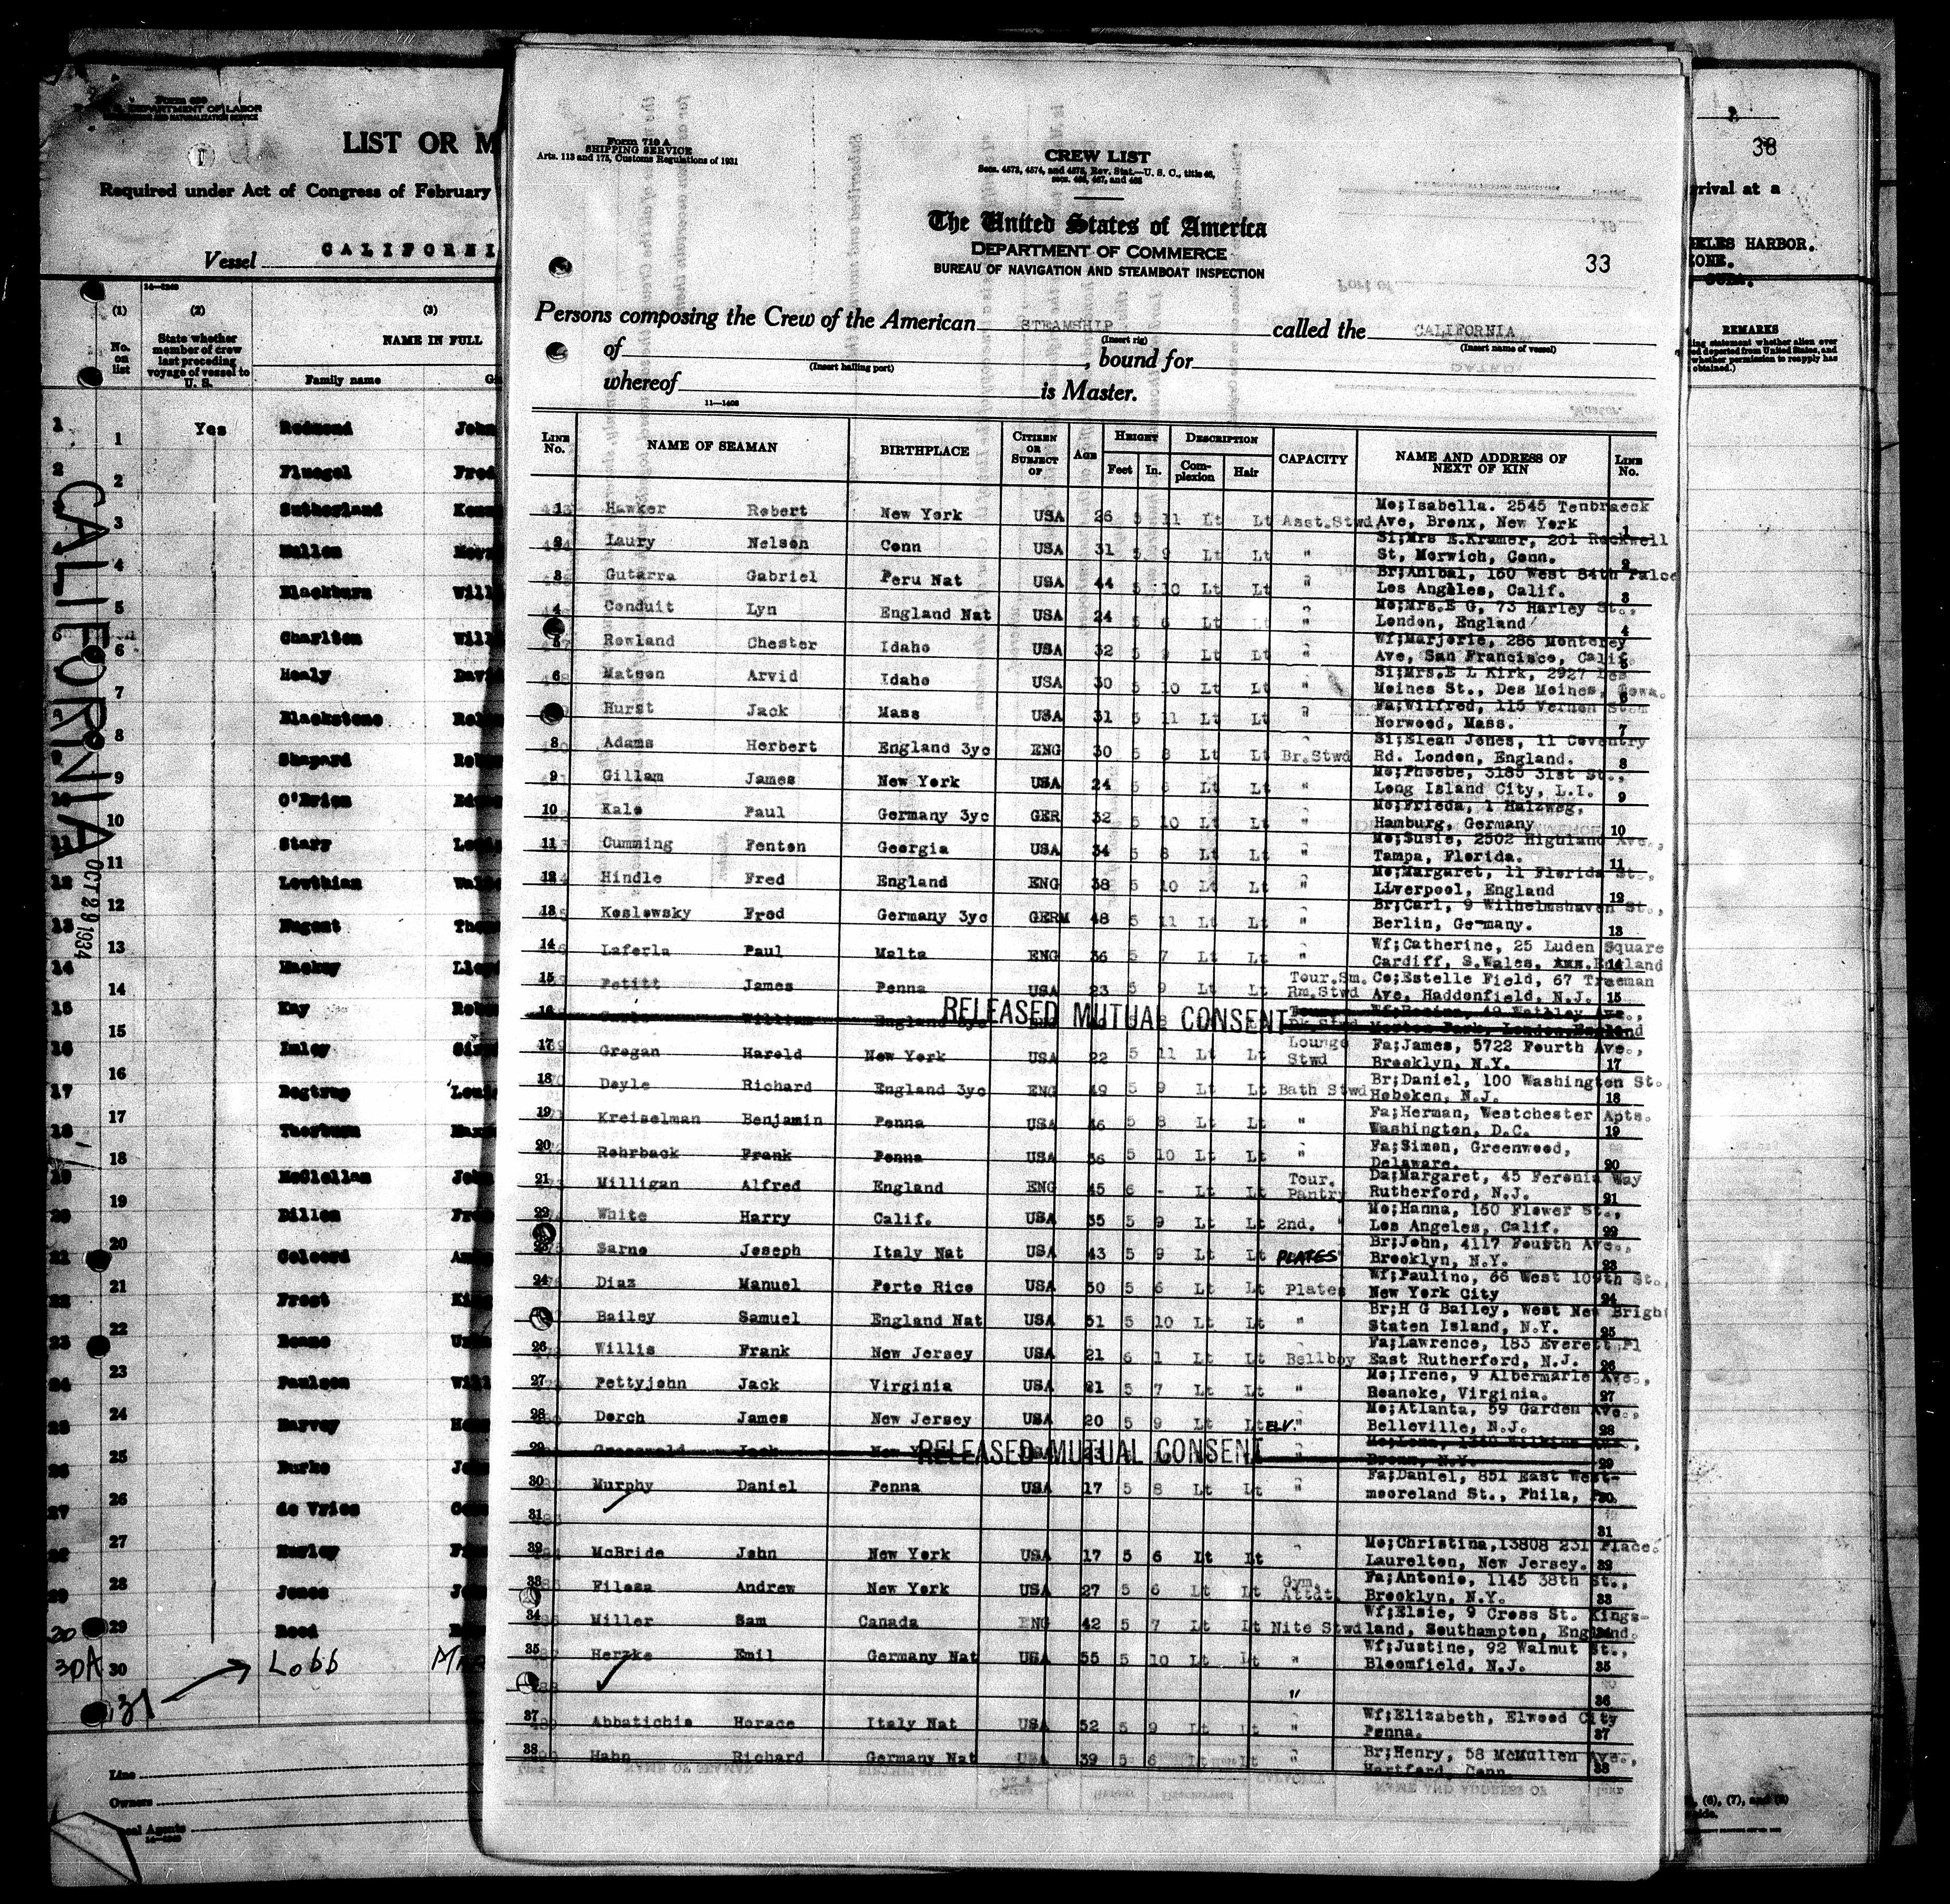 Form 689
DEPARTMENT OF LABOR
IMMIGRATION AND NATURALIZATION SERVICE
LIST OR M
Required under Act of Congress of February
Vessel CALIFORNI
(1) (2) (3)
No. on list
State whether member of crew last preceding voyage of vessel to U. S.
NAME IN FULL
Family name
1 1 Yes Redmond John
2 2 Fluegel Fred
3 Sutherland
4 Mullen
5 Blackburn Will
6 Charlton Will
7 Healy Davi
8 Blackstone
9 Shepard
10 O'Brien
11 Starr
12 Lowthian
13 Nugent
14 Mackey
15 Kay
16 Imley
17
18 Thorburn
19 McClellan John
20 Dillon
21 Colcord
22 Frost
23 Deane
24 Paulson Will
25 Harvey
26 Burke
27 de Vries
28 Hurley
29 Jones
30 Reed
30A Lobb
31
CALIFORNIA
OCT 29 1934
Line
Owners
Local Agents
Form 710 A
SHIPPING SERVICE
Arts. 113 and 175, Customs Regulations of 1931
CREW LIST
Secs. 4573, 4574, and 4575, Rev. Stat.—U. S. C., title 46,
secs. 466, 467, and 468
The United States of America
DEPARTMENT OF COMMERCE
BUREAU OF NAVIGATION AND STEAMBOAT INSPECTION
33
Persons composing the Crew of the American STEAMSHIP called the CALIFORNIA
(Insert rig) (Insert name of vessel)
of , bound for
(Insert hailing port)
whereof is Master.
11—1408
LINE No. NAME OF SEAMAN BIRTHPLACE CITIZEN OR SUBJECT OF AGE HEIGHT Feet In. DESCRIPTION Complexion Hair CAPACITY NAME AND ADDRESS OF NEXT OF KIN LINE No.
1 Hawker Robert New York USA 26 5 11 Lt Lt Asst.Stwd Mo;Isabella. 2545 Tenbraeck
Ave, Bronx, New York 1
2 Laury Nelson Conn USA 31 5 9 Lt Lt " Si;Mrs E.Kramer, 201 Rockwell
St, Morwich, Conn. 2
3 Gutarra Gabriel Peru Nat USA 44 5 10 Lt Lt " Br;Anibal, 160 West 84th Palce
Los Angales, Calif. 3
4 Conduit Lyn England Nat USA 24 5 6 Lt Lt " Mo;Mrs.E G, 73 Harley St.,
London, England 4
5 Rowland Chester Idaho USA 32 5 9 Lt Lt " Wf;Marjorie, 286 Monterey
Ave, San Francisco, Calif. 5
6 Matson Arvid Idaho USA 30 5 10 Lt Lt " Si;Mrs.E L Kirk, 2927 Des
Moines St., Des Moines, Iowa. 6
Hurst Jack Mass USA 31 5 11 Lt Lt " Fa;Wilfred, 115 Vernon St
Norwood, Mass. 7
8 Adams Herbert England 3yc ENG 30 5 8 Lt Lt Br.Stwd Si;Elean Jones, 11 Coventry
Rd. London, England. 8
9 Gillam James New York USA 24 5 6 Lt Lt " Mo;Phoebe, 3185 31st St.,
Long Island City, L.I. 9
10 Kale Paul Germany 3yc GER 32 5 10 Lt Lt " Mo;Frieda, 1 Halzweg,
Hamburg, Germany 10
11 Cumming Fenton Georgia USA 34 5 8 Lt Lt " Mo;Susie, 2502 Highland Ave.,
Tampa, Florida. 11
12 Hindle Fred England ENG 38 5 10 Lt Lt " Mo;Margaret, 11 Florida St.,
Liverpool, England 12
13 Koslowsky Fred Germany 3yc GERM 48 5 11 Lt Lt " Br;Carl, 9 Wilhelmshaven St.,
Berlin, Germany. 13
14 Laferla Paul Malta ENG 36 5 7 Lt Lt " Wf;Catherine, 25 Luden Square
Cardiff, S.Wales, England 14
15 Petitt James Penna USA 23 5 9 Lt Lt Tour.Sm. Rm.Stwd Co;Estelle Field, 67 Treeman
Ave, Haddonfield, N.J. 15
16 William England 3yc RELEASED MUTUAL CONSENT
17 Grogan Harold New York USA 22 5 11 Lt Lt Lounge Stwd Fa;James, 5722 Fourth Ave.,
Brooklyn, N.Y. 17
18 Doyle Richard England 3yc ENG 49 5 9 Lt Lt Bath Stwd Br;Daniel, 100 Washington St.
Hoboken, N.J. 18
19 Kreiselman Benjamin Penna USA 46 5 8 Lt Lt " Fa;Herman, Westchester Apts.
Washington, D.C. 19
20 Rohrback Frank Penna USA 36 5 10 Lt Lt " Fa;Simon, Greenwood,
Delaware. 20
21 Milligan Alfred England ENG 45 6 - Lt Lt Tour. Pantry Da;Margaret, 45 Feronia Way
Rutherford, N.J. 21
22 White Harry Calif. USA 35 5 9 Lt Lt 2nd. " Mo;Hanna, 160 Flower St.,
Los Angeles, Calif. 22
23 Sarno Joseph Italy Nat USA 43 5 9 Lt Lt PLATES Br;John, 4117 Fourth Ave.,
Brooklyn, N.Y. 23
24 Diaz Manuel Porto Rico USA 50 5 6 Lt Lt Plates Wf;Paulino, 66 West 109th St.,
New York City 24
Bailey Samuel England Nat USA 51 5 10 Lt Lt " Br;H G Bailey, West New Bright
Staten Island, N.Y. 25
26 Willis Frank New Jersey USA 21 6 1 Lt Lt Bellboy Fa;Lawrence, 183 Everett Pl
East Rutherford, N.J. 26
27 Pettyjohn Jack Virginia USA 21 5 7 Lt Lt " Mo;Irene, 9 Albermarle Ave.,
Roanoke, Virginia. 27
28 Dorch James New Jersey USA 20 5 9 Lt Lt ELV. " Mo;Atlanta, 59 Garden Ave.,
Belleville, N.J. 28
29 Jack New York RELEASED MUTUAL CONSENT "
Bronx, N.Y. 29
30 Murphy Daniel Penna USA 17 5 8 Lt Lt " Fa;Daniel, 851 East West-
mooreland St., Phila, Pa. 30
31 31
32 McBride John New York USA 17 5 6 Lt Lt " Mo;Christina,13808 231 Place.
Laurelton, New Jersey. 32
33 Filosa Andrew New York USA 27 5 6 Lt Lt Gym. Attdt. Fa;Antonio, 1145 38th St.,
Brooklyn, N.Y. 33
34 Miller Sam Canada ENG 42 5 7 Lt Lt Nite Stwd Wf;Elsie, 9 Cross St. Kings-
land, Southampton, England. 34
35 Herzke Emil Germany Nat USA 55 5 10 Lt Lt " Wf;Justine, 92 Walnut St.,
Bloomfield, N.J. 35
" 36
37 Abbatichie Horace Italy Nat USA 52 5 9 Lt Lt " Wf;Elizabeth, Elwood City
Penna. 37
38 Hahn Richard Germany Nat USA 39 5 6 Lt Lt " Br;Henry, 58 McMullen Ave.,
Hartford, Conn 38
38
rrival at a
ELES HARBOR.
ZONE.
REMARKS